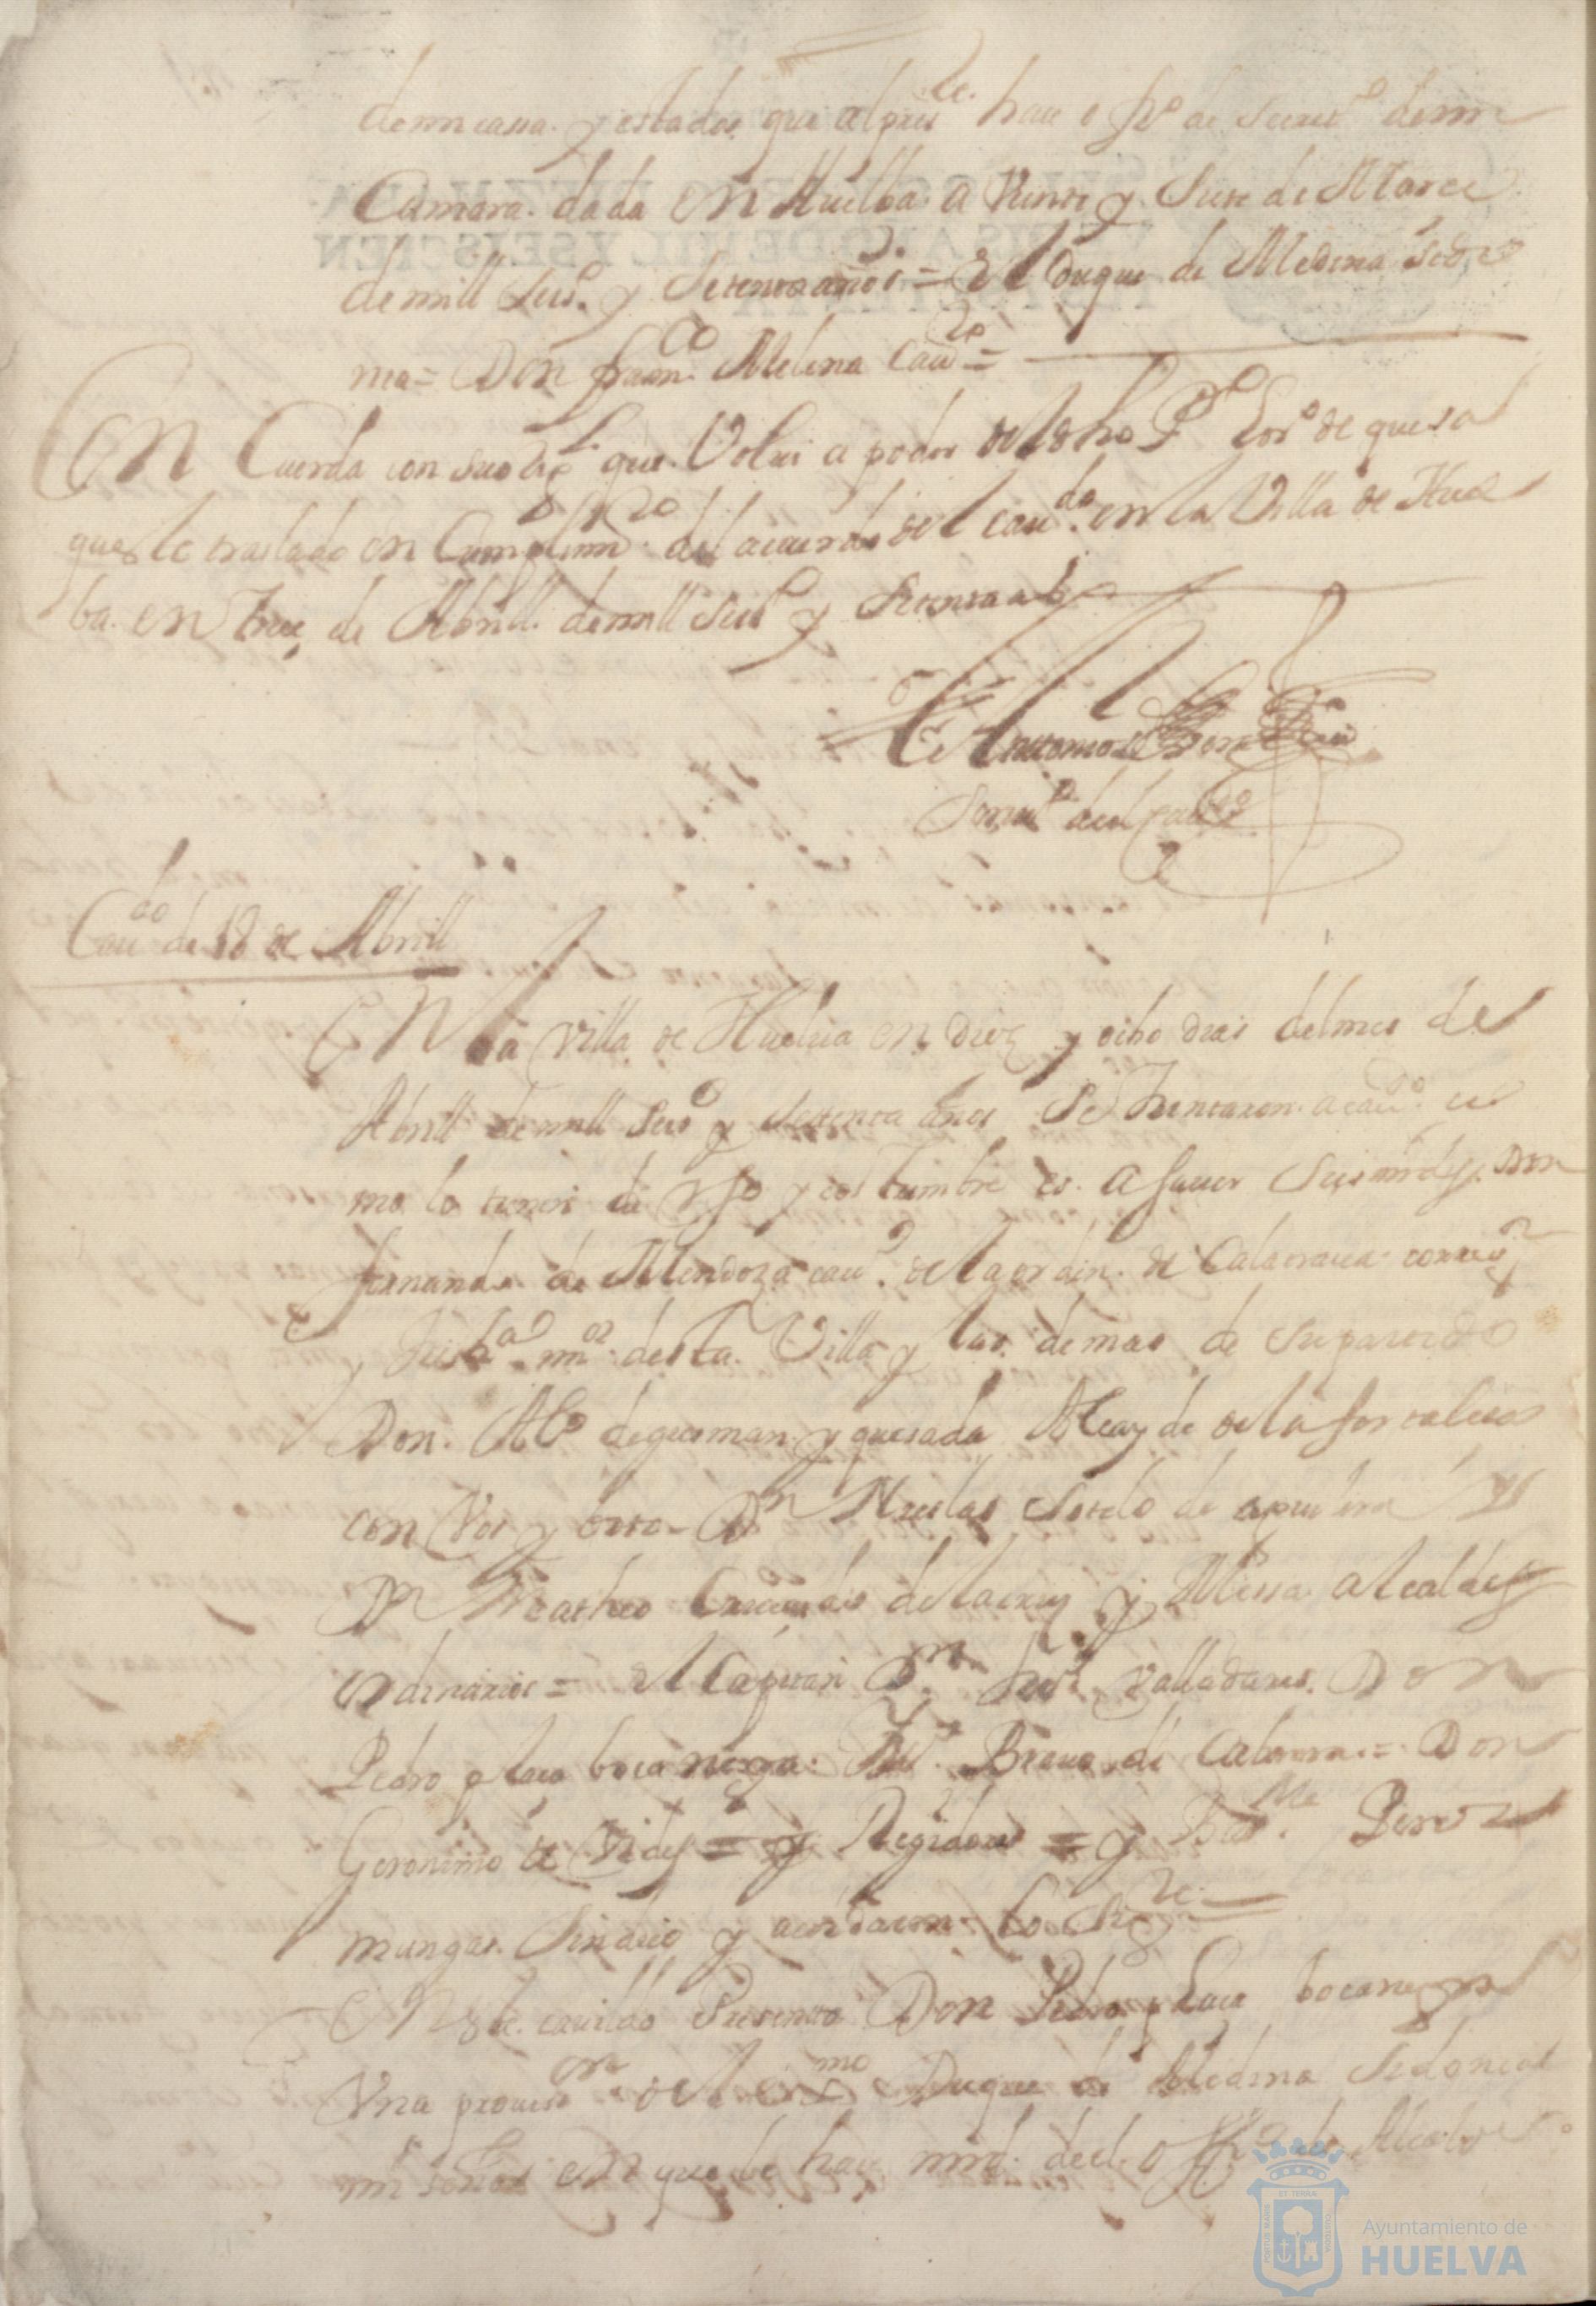 de mi cassa y estados que al pres.te hace o fi.o de secret.o de mi
Camara dada en Huelba a Veinte y siete de Março
de mill seis.os y setenta años = El Duque de Medina sido
nia = Don fran.co Molina Cau.ro =
Con Cuerda con su orig.l que Volui a poder del dho P.o de quesa
que este traslado en Cumplim.to del acuerdo del cau.do en la Villa de Huel
ba en trece de Abrill de mill seis.os y setenta a.s
Antonio
del cau.do
Cau.do de 18 de Abrill
EN la Villa de Huelua en diez y ocho dias del mes de
Abrill de mill seis.os y setenta años se Juntaron a cau.do co
mo lo tienen de Vso y costumbre es a sauer su mrd Don
fernando de Mendoza cau.o de la orden de Calatraua correg.or
y Just.a m.or desta Villa y los demas de su parecer
Don Al.o de gusman y quesada Alcayde de la fortalesa
con Vos y Voto = D.n Nicolas Sotelo de y
D.n Matheo de la cruz y Messa alcaldes
ordinarios = el Capitan D.n Valladares Don
Pedro ponce bocanegra Brauo de Cabrera = Don
Geronimo de Vides = y Regidores = y Bar.me Peres
mungar Sindico y acordaron lo sig.te
EN este cauildo Presento Don Pedro ponce bocanegra
Vna prouis.on del ex.mo Duque de Medina Sidonia
mi señor en que le hace mrd del offi.o de
Ayuntamiento de
HUELVA